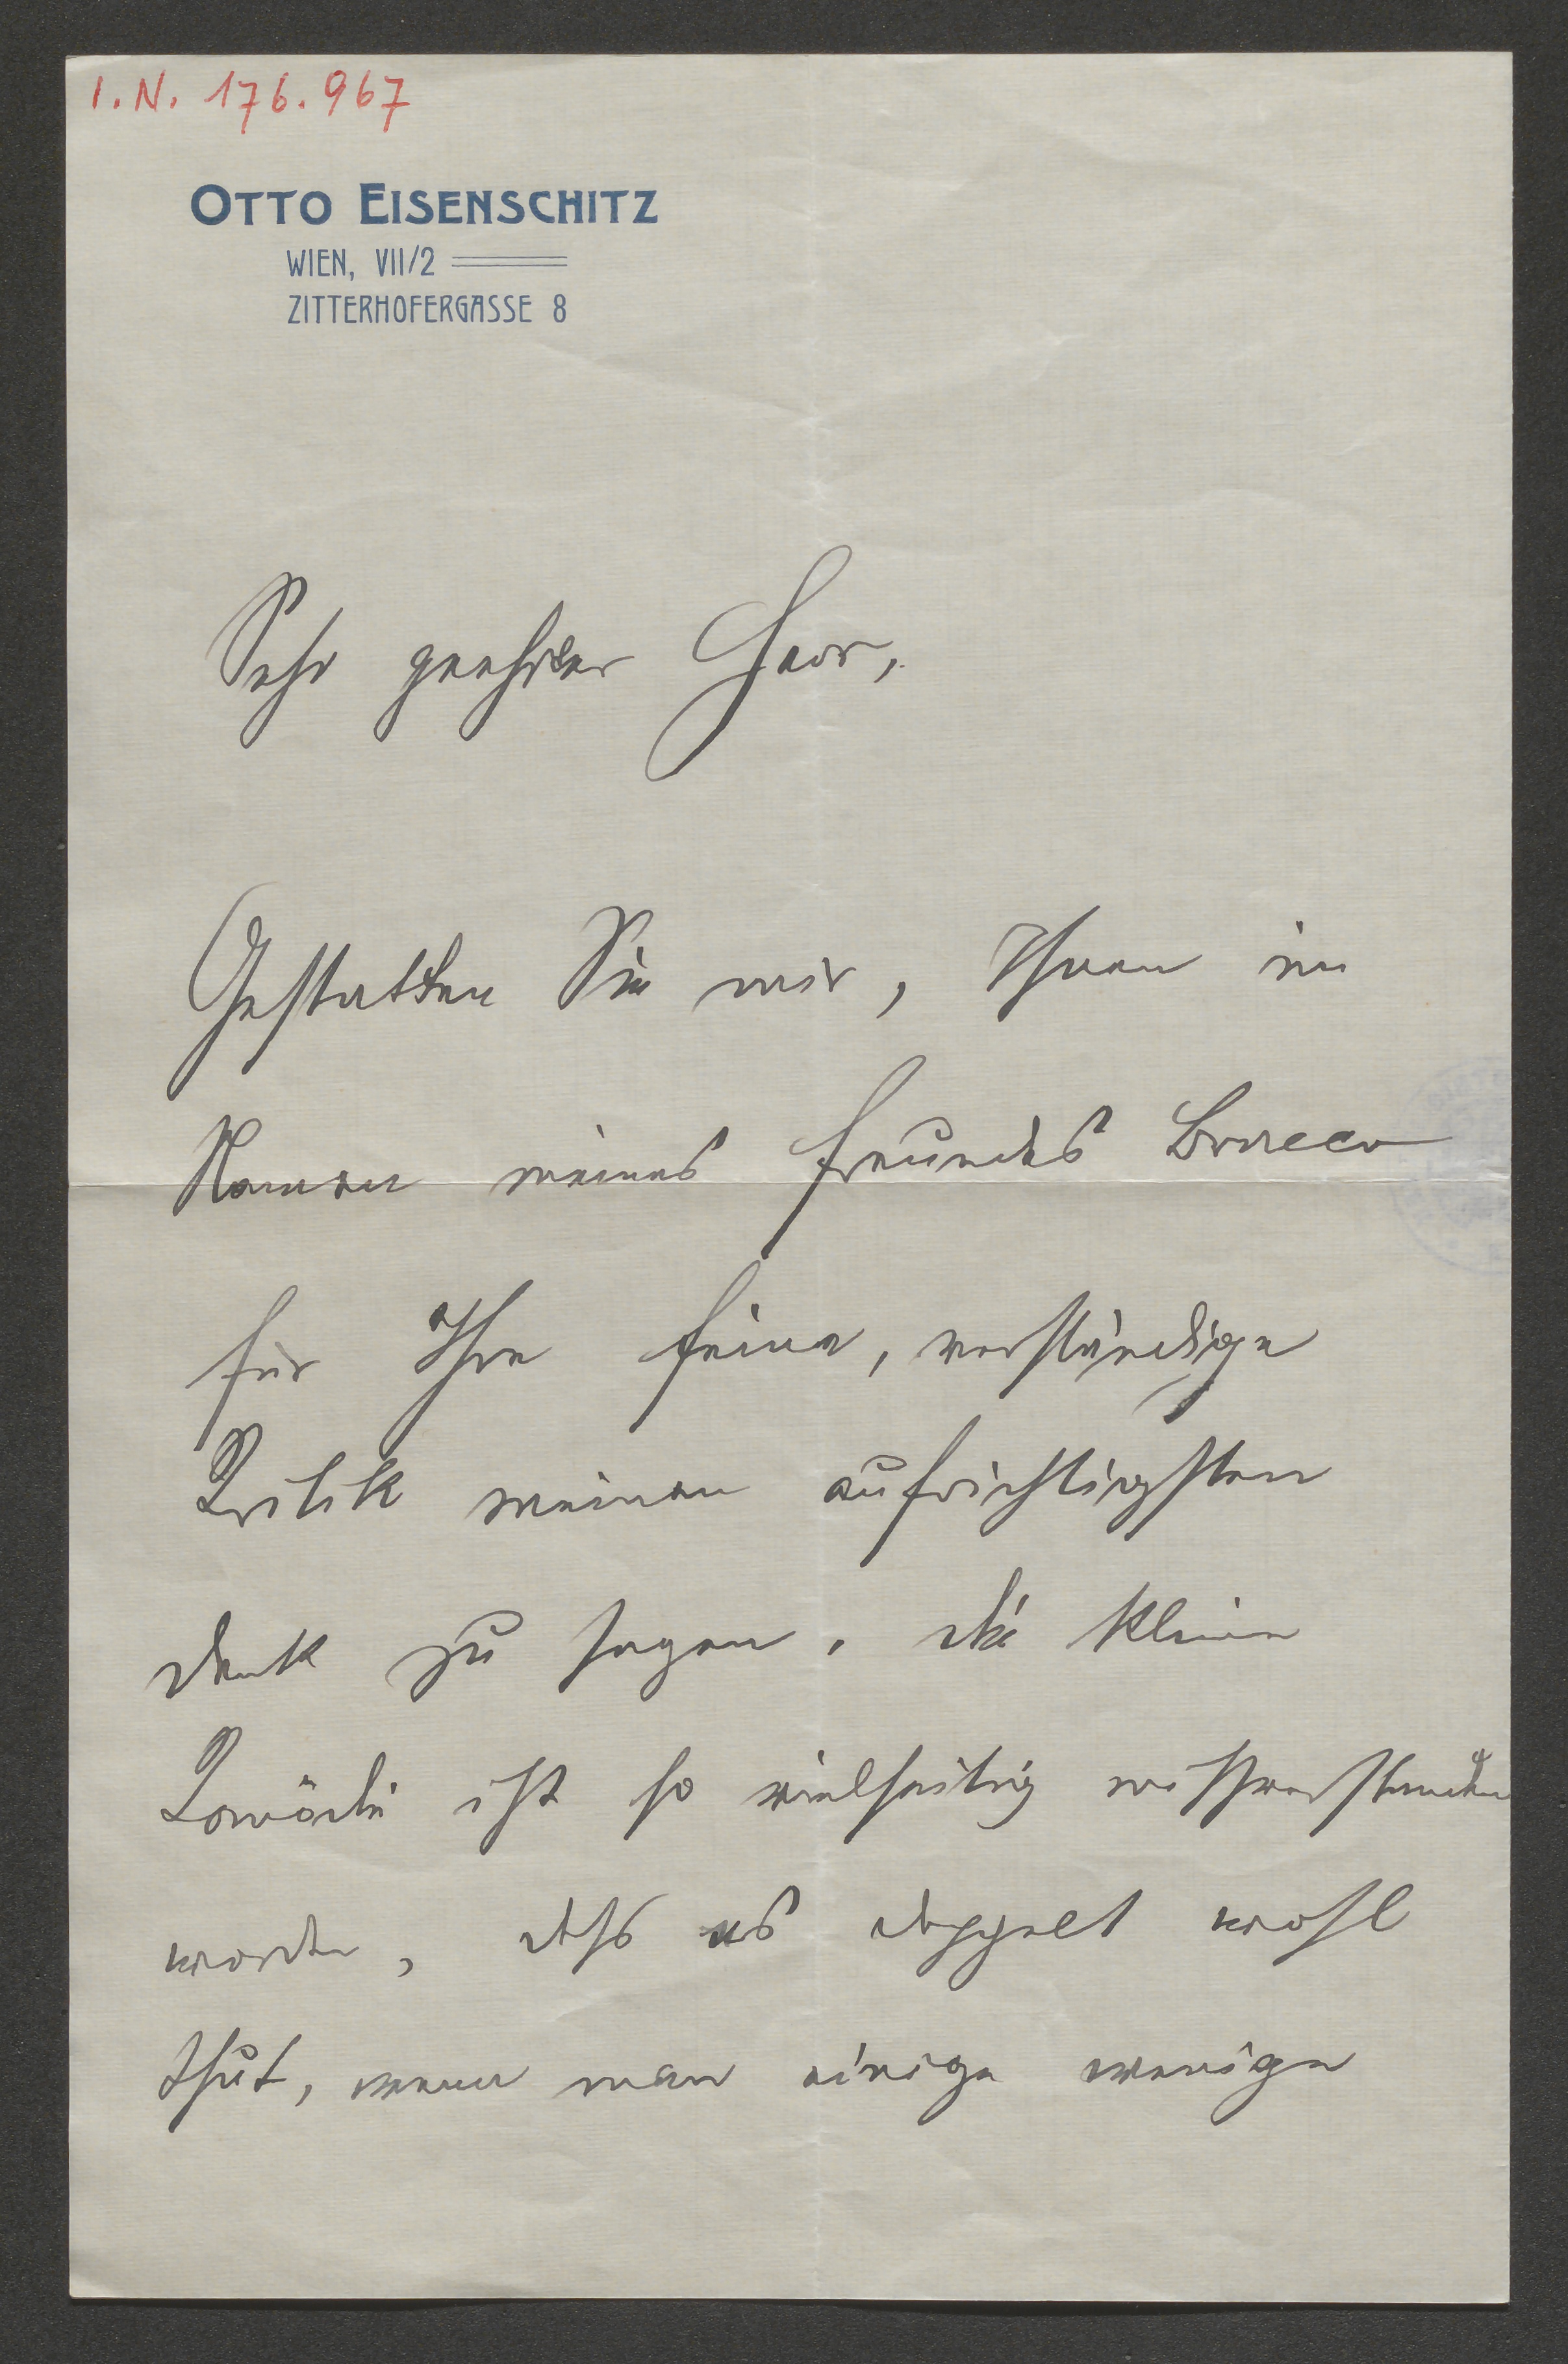 I. N. 176.967
OTTO EISENSCHITZ
WIEN, VII/2
ZITTERHOFERGASSE 8
Sehr geehrter Herr,
Gestatten Sie mir, Ihnen im
Namen meines Freundes Bracco
für Ihre feine, verständige
Kritik meinen aufrichtigsten
Dank zu sagen. Die kleine
Komödie ist so vielseitig missverstanden
worden, dass es doppelt wohl
thut, wenn man einige wenige